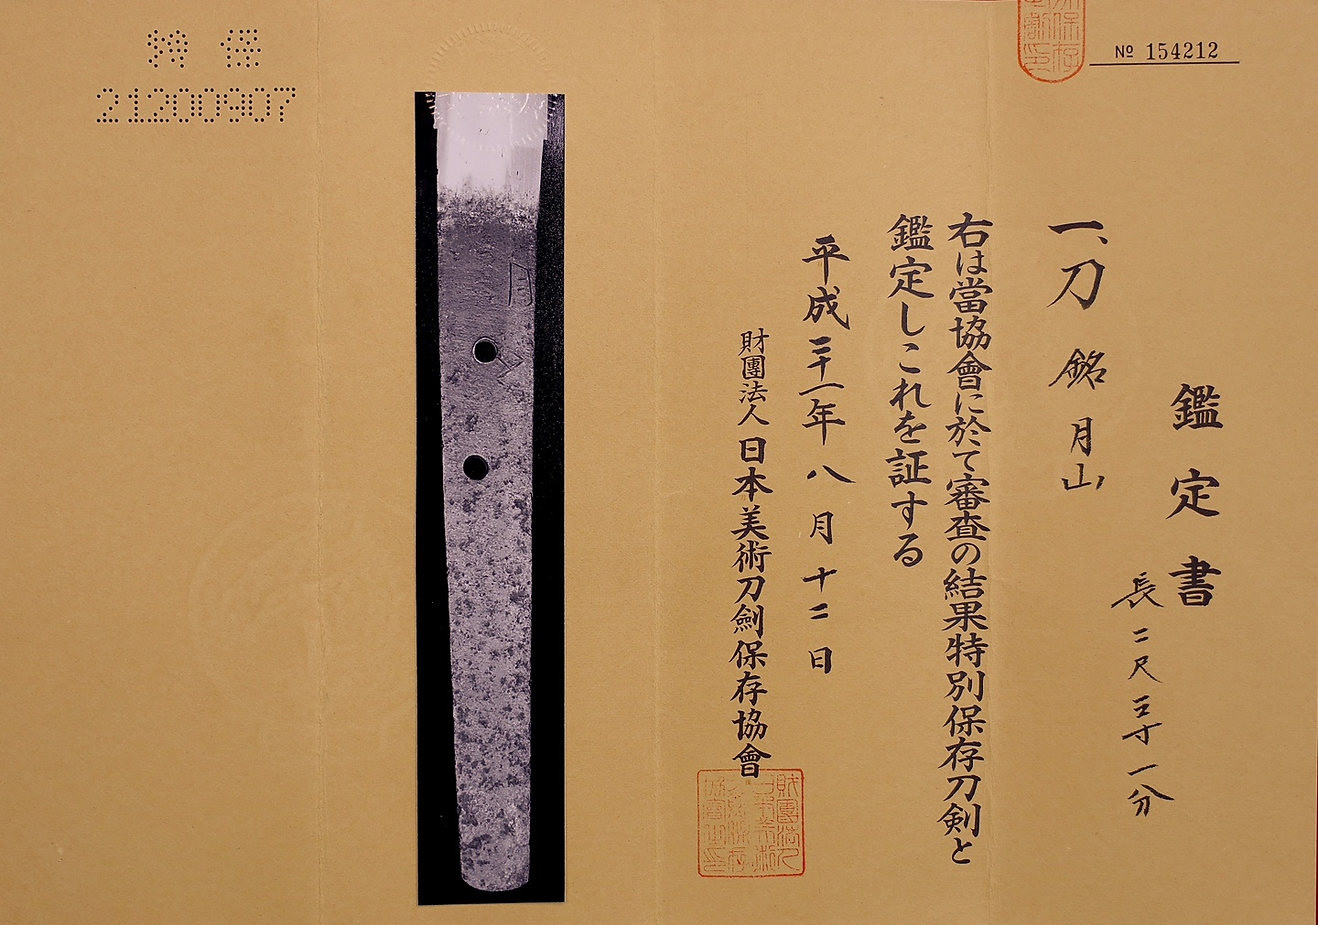 特 保
21200907
№ 154212
鑑定書
長二尺三寸一分
一、刀 銘 月山
右は當協會に於て審査の結果特別保存刀剣と
鑑定しこれを証する
平成二十一年八月十二日
財團法人日本美術刀劍保存協會
月